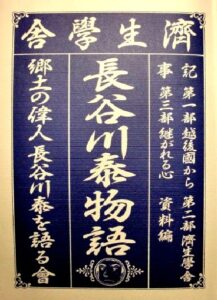 濟生學舎
記事
第一部越後國から 第二部濟生學舎
第三部継がれる心 資料編
長谷川泰物語
郷土の偉人長谷川泰を語る會